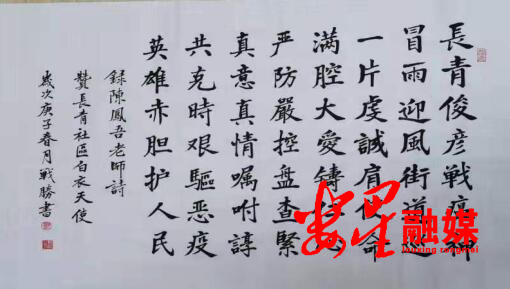 長青俊彦戰瘟神
冒雨迎風街道巡
一片虔誠肩使命
满腔大愛鑄
严防嚴控盘查緊
真意真情嘱咐諄
共克時艰驅恶疫
英雄赤胆护人民
録陳鳳吾老師詩
贊長青社區白衣天使
歲次庚子春月戰勝書
娄星融媒
louxing rongmei